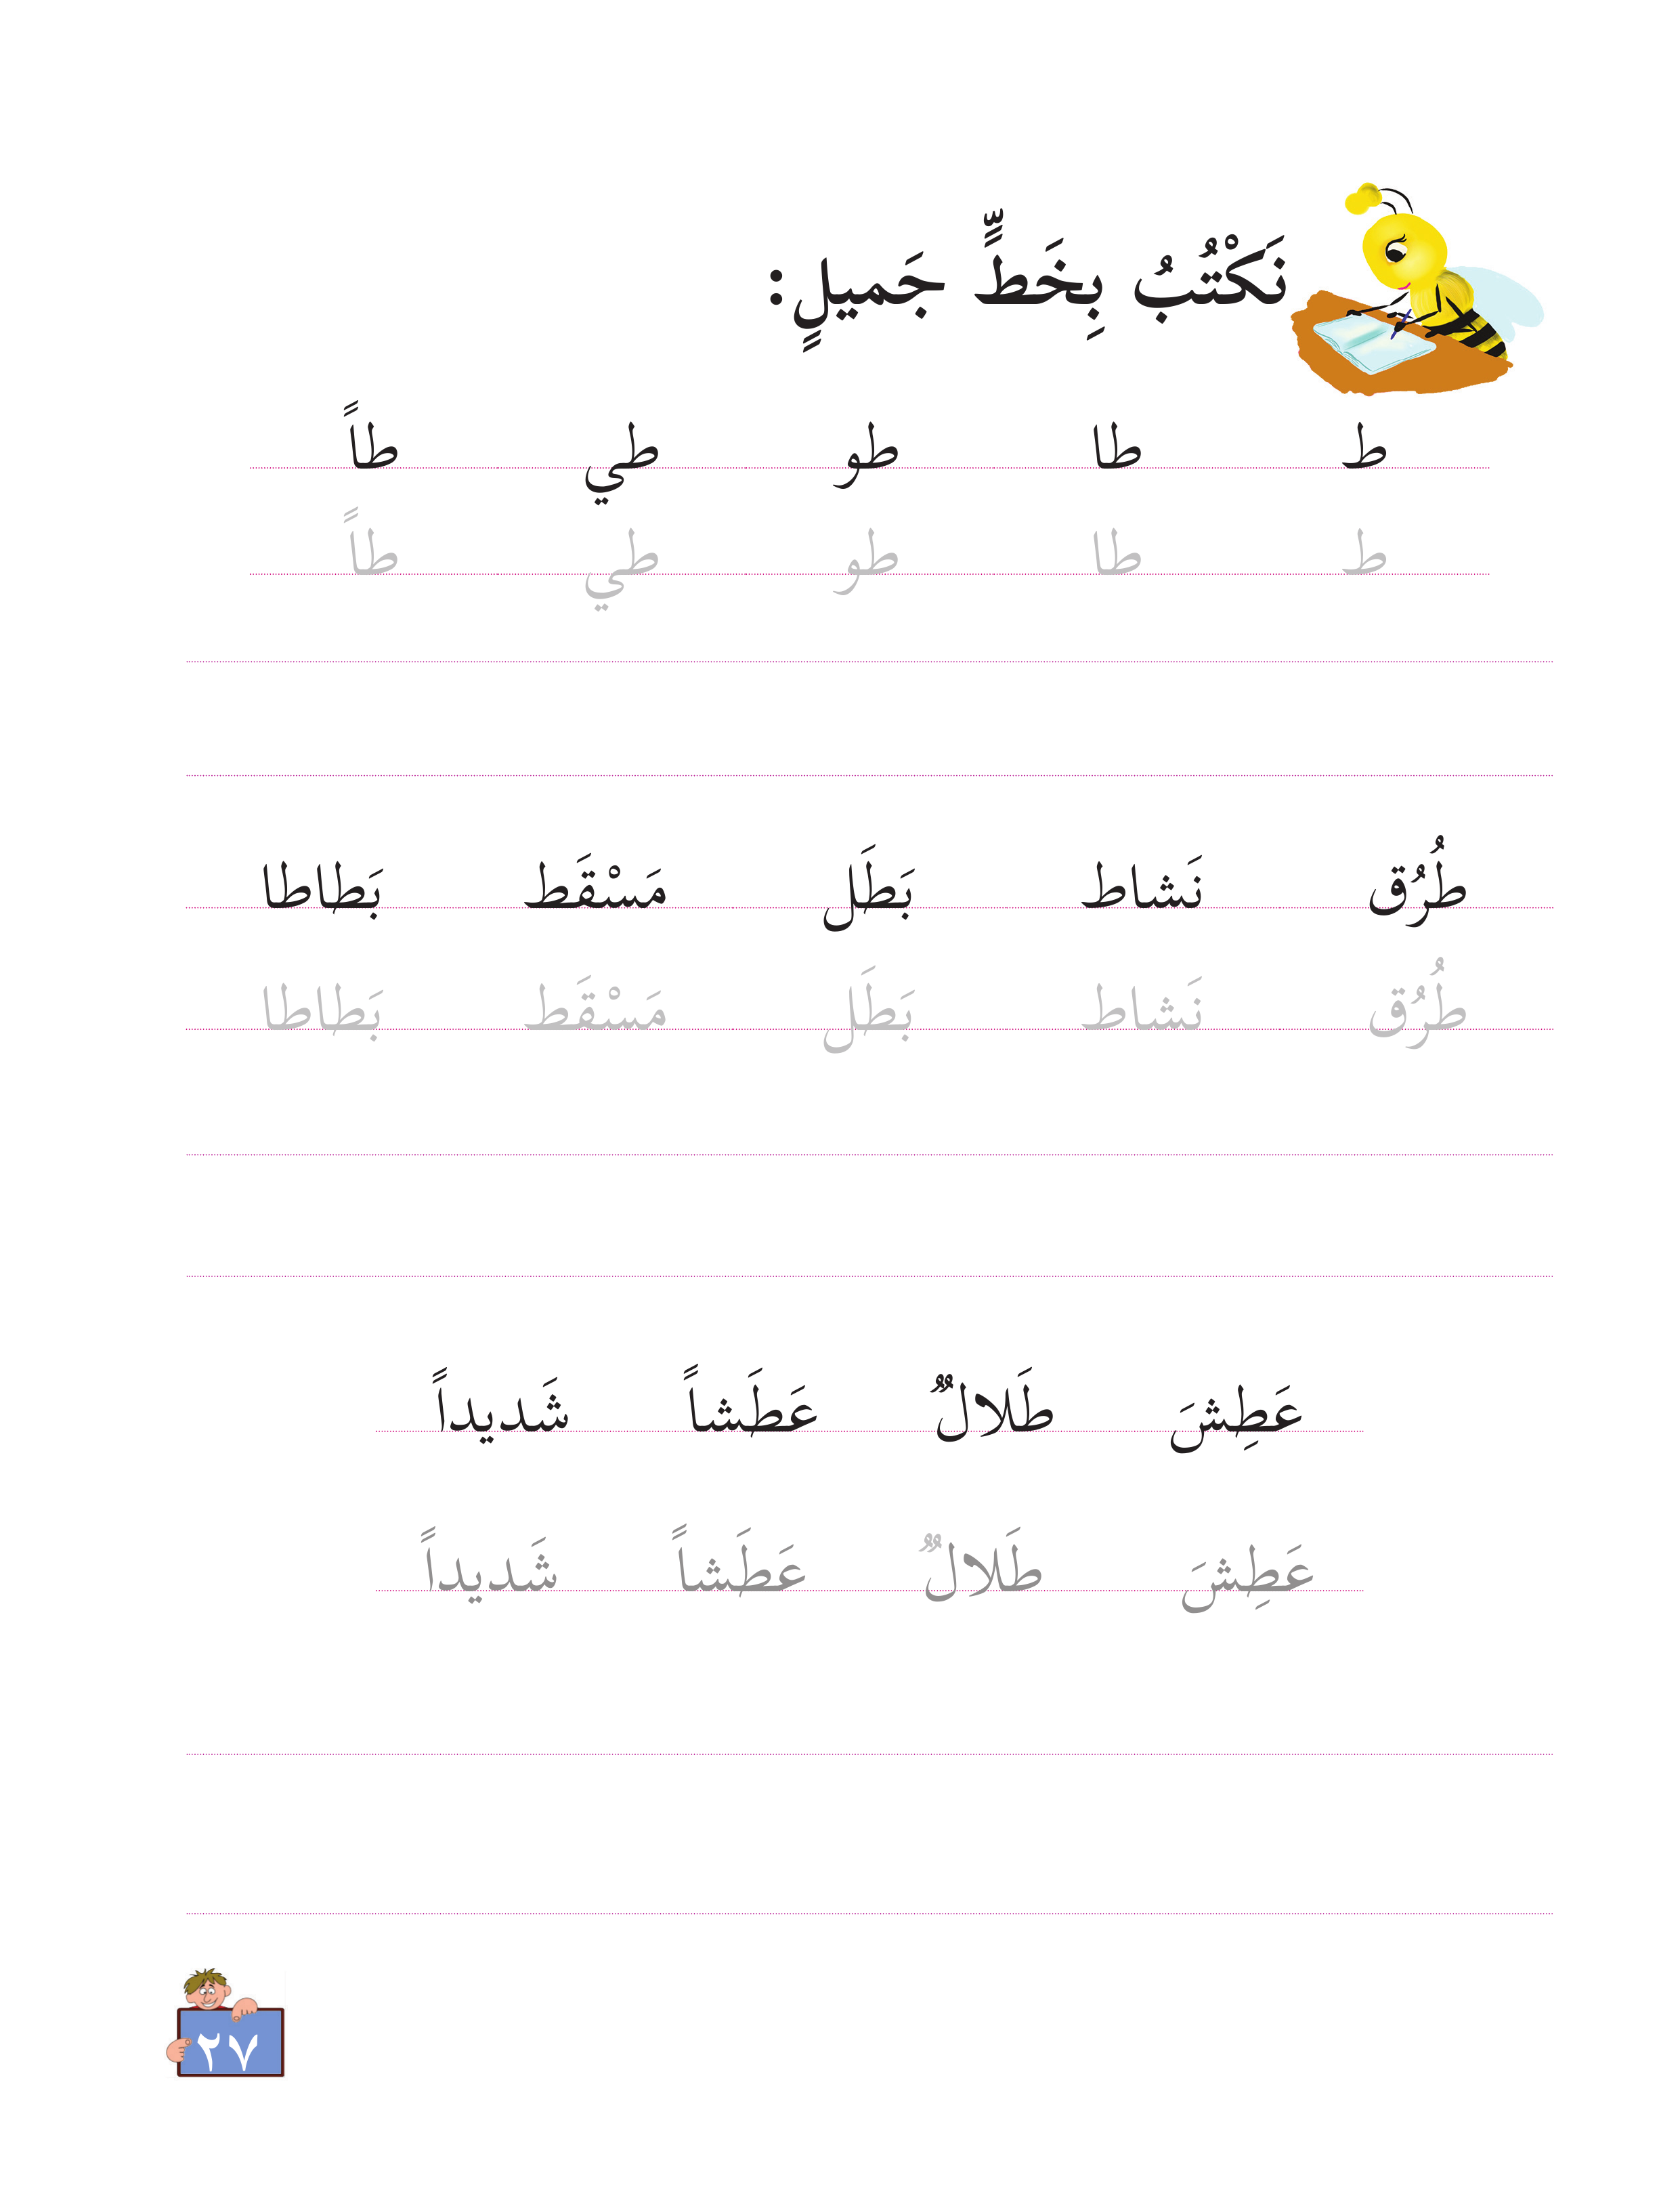 نَكْتُبُ بِخَطٍّ جَميلٍ:
ط طا طو طي طاً
ط طا طو طي طاً
طُرُق نَشاط بَطَل مَسْقَط بَطاطا
طُرُق نَشاط بَطَل مَسْقَط بَطاطا
عَطِشَ طَلالٌ عَطَشاً شَديداً
عَطِشَ طَلالٌ عَطَشاً شَديداً
٢٧